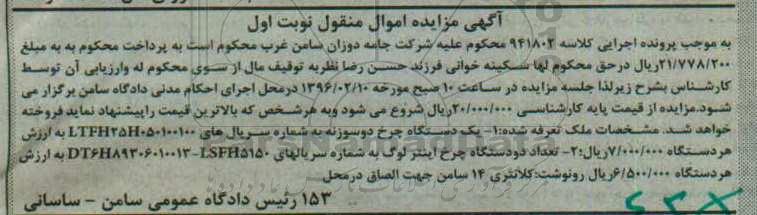 آگهی مزایده اموال منقول نوبت اول
به موجب پرونده اجرایی کلاسه ۹۴۱۸۰۲ محکوم علیه شرکت جامه دوزان سامن غرب محکوم است به پرداخت محکوم به به مبلغ
۲۱/۷۷۸/۲۰۰ریال درحق محکوم لها سکینه خوانی فرزند حسن رضا نظریه توقیف مال از سوی محکوم له وارزیابی آن توسط
کارشناس بشرح زیرلذا جلسه مزایده در ساعت ۱۰ صبح مورخه ۱۳۹۶/۰۲/۱۰ درمحل اجرای احکام مدنی دادگاه سامن برگزار می
شود.مزایده از قیمت پایه کارشناسی ۲۰/۰۰۰/۰۰۰ریال شروع می شود وبه هرشخص که بالاترین قیمت راپیشنهاد نماید فروخته
خواهد شد. مشخصات ملک تعرفه شده:۱- یک دستگاه چرخ دوسوزنه به شماره سریال های LTFH۲۵H۰۵۰۱۰۰۱۰۰ به ارزش
هردستگاه ۷/۰۰۰/۰۰۰ریال؛۲- تعداد دودستگاه چرخ اینتر لوگ به شماره سریالهای DT۶H۸۹۳۰۶۰۱۰۰۱۳-LSFH۵۱۵۰ به ارزش
هردستگاه ۶/۵۰۰/۰۰۰ریال رونوشت:کلانتری ۱۴ سامن جهت الصاق درمحل
۱۵۳ رئیس دادگاه عمومی سامن - ساسانی